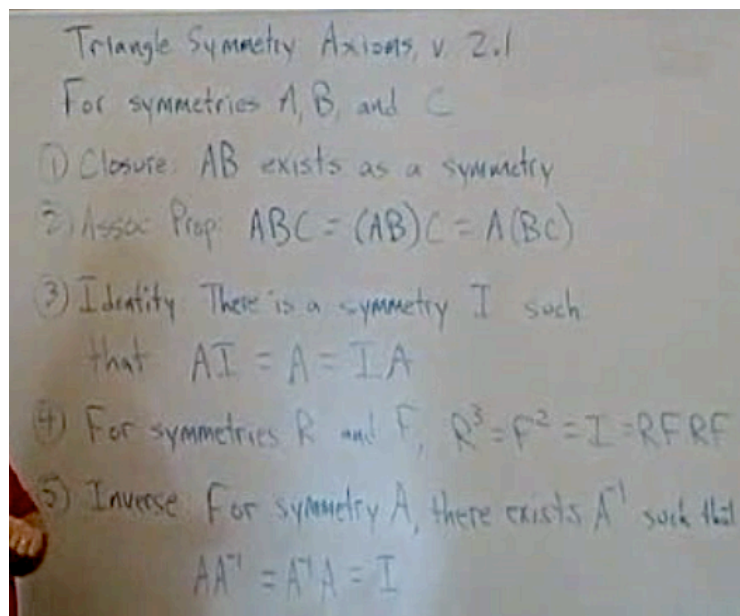 Triangle Symmetry Axioms, v. 2.1
For symmetries A, B, and C
① Closure: AB exists as a symmetry
② Assoc Prop: ABC = (AB)C = A(BC)
③ Identity: There is a symmetry I such
that AI = A = IA
④ For symmetries R and F, R³ = F² = I = RFRF
⑤ Inverse: For symmetry A, there exists A⁻¹ such that
AA⁻¹ = A⁻¹A = I